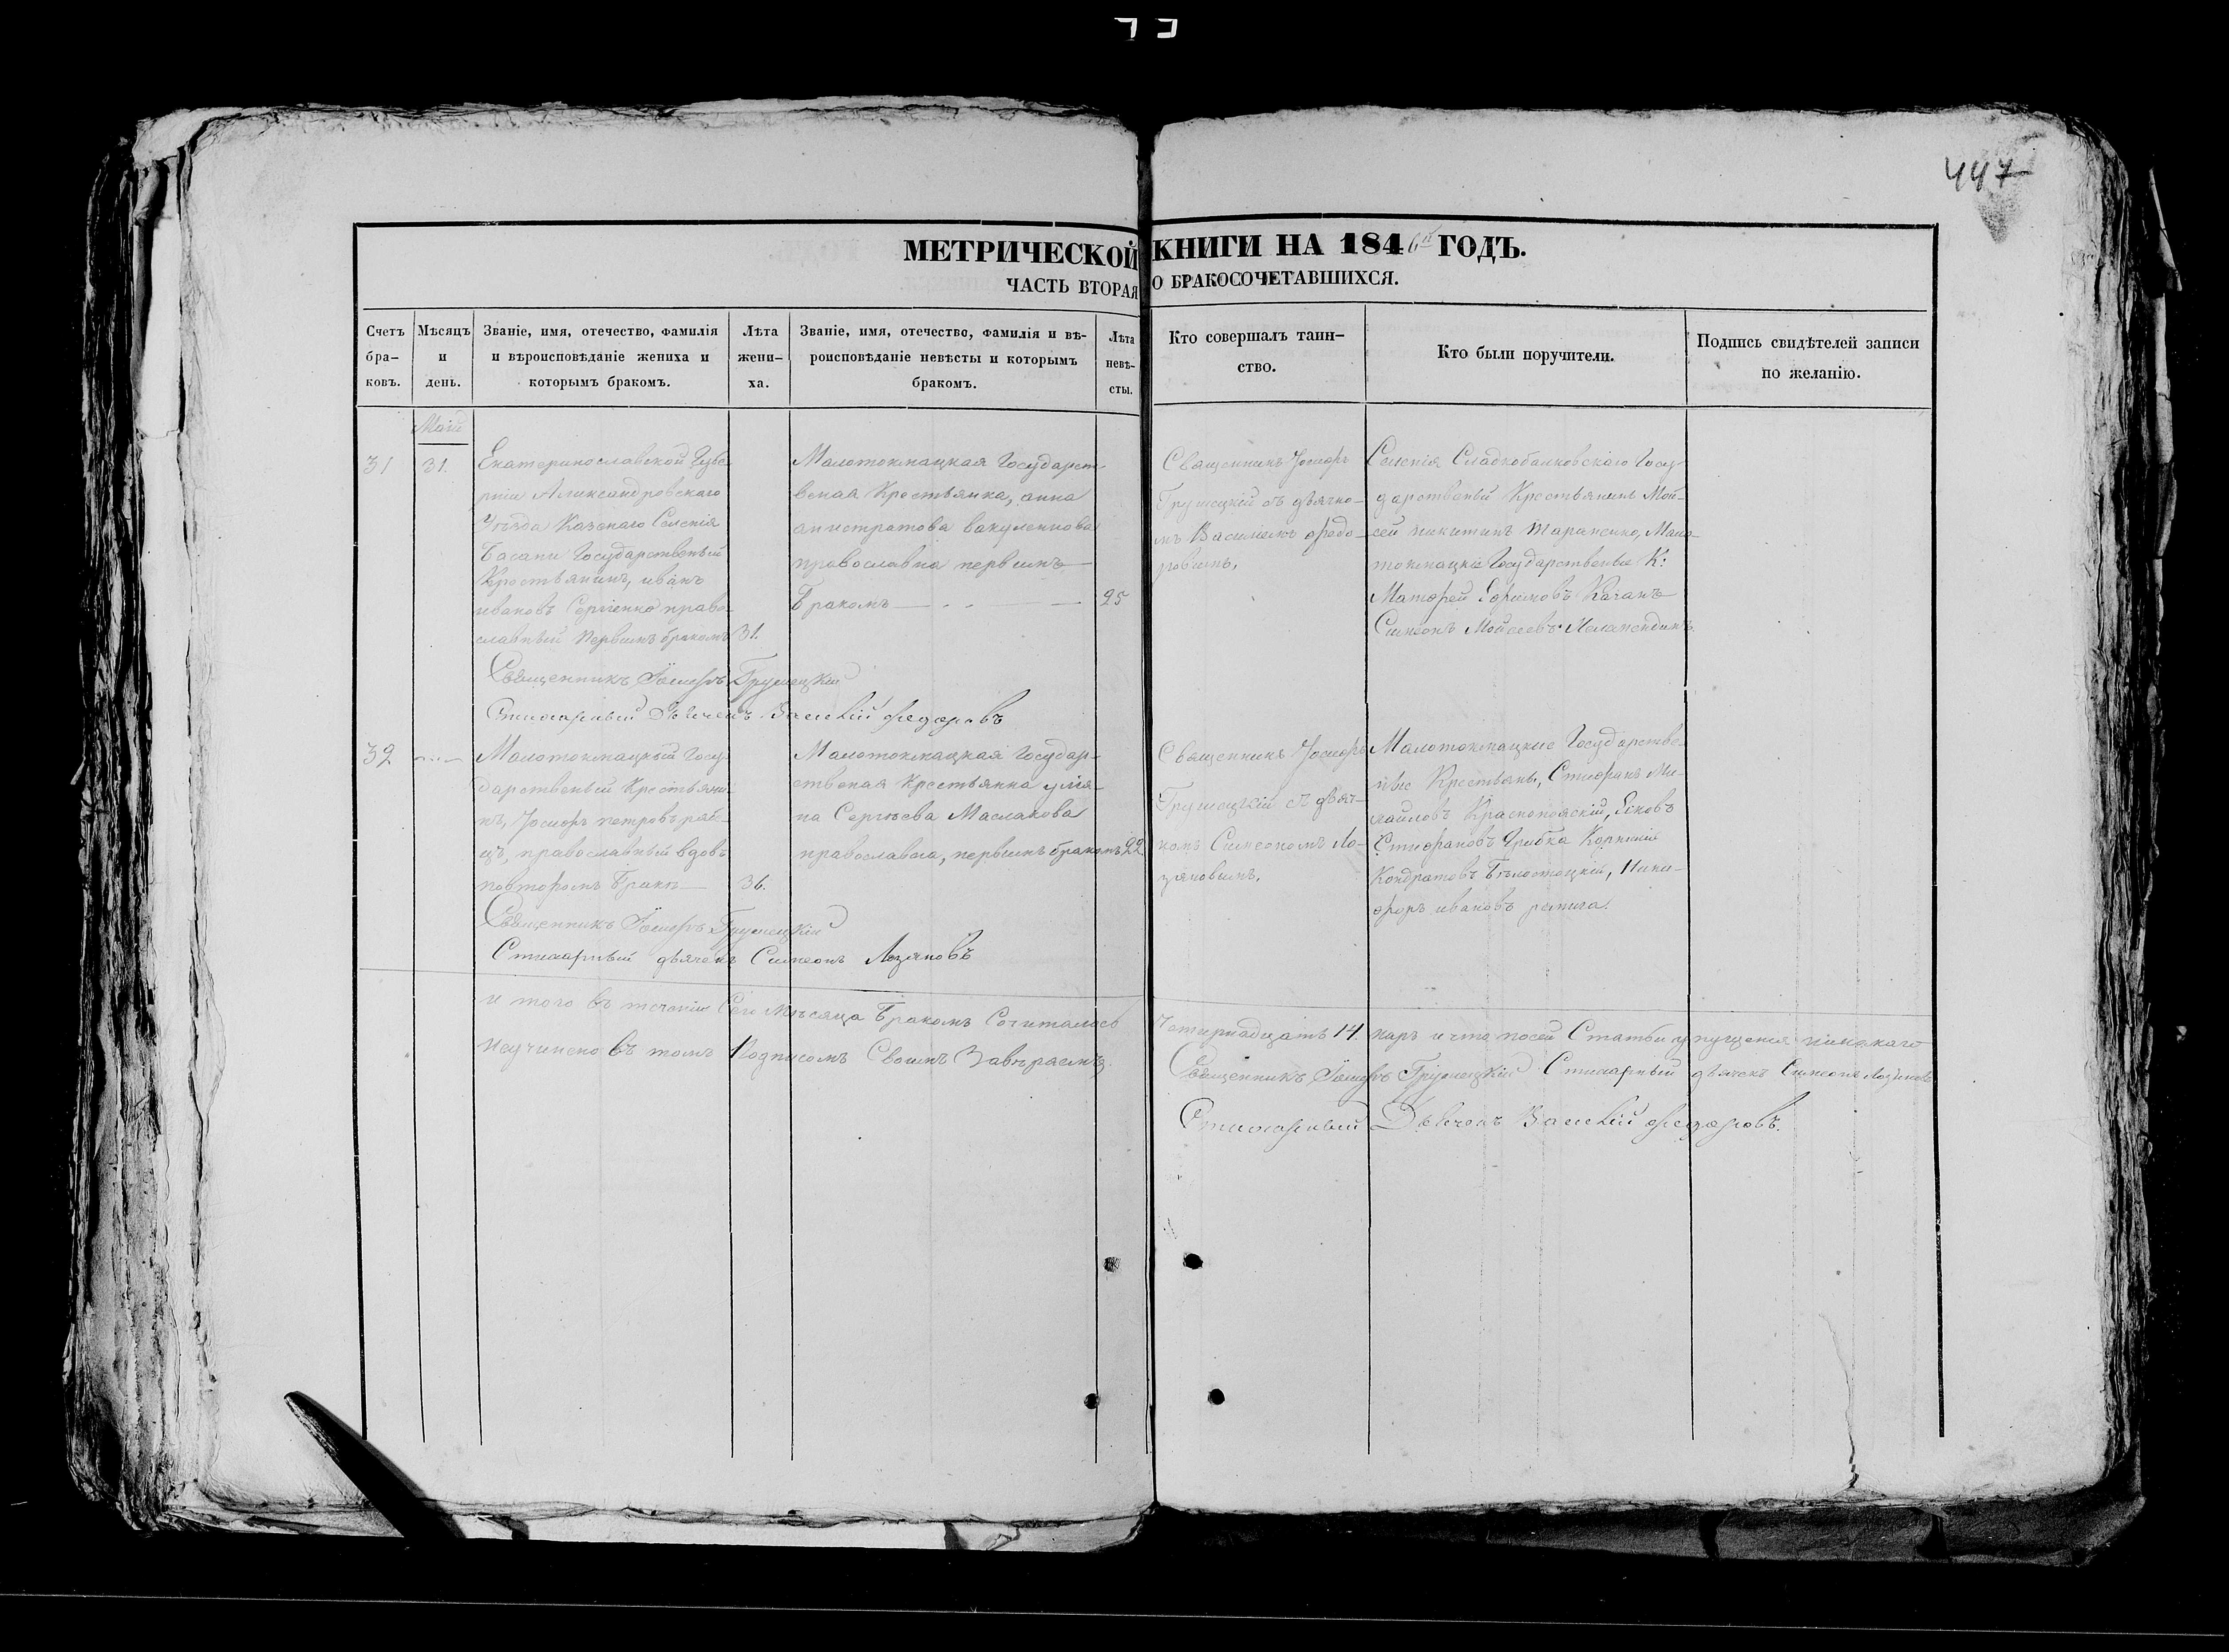 447
МЕТРИЧЕСКОЙ КНИГИ НА 1846й ГОДЪ.
ЧАСТЬ ВТОРАЯ О БРАКОСОЧЕТАВШИХСЯ.
Счетъ бра-ковъ.
Мѣсяцъ и день.
Званіе, имя, отечество, фамилія и вѣроисповѣданіе жениха и которымъ бракомъ.
Лѣта жени-ха.
Званіе, имя, отечество, фамилія и вѣ-роисповѣданіе невѣсты и которымъ бракомъ.
Лѣта невѣ-сты.
Кто совершалъ таин-ство.
Кто были поручители.
Подпись свидѣтелей записи по желанію.
Маій
31
31.
Екатеринославской Губе
рніи Александровскаго
Уѣзда Казенаго Селенія
Басани Государственый
Крестьянинъ, иванъ
ивановъ Сергіенко право-
славный первымъ бракомъ
31.
Малотокмацкая Государст-
веная Крестьянка, анна
анистратова вакуленкова
православна первимъ
Бракомъ
25
Священникъ Іосифъ
Грушецкій съ дьячко-
мъ Василіемъ федо-
ровимъ,
Селенія Сладкобалковскаго Госу-
дарственый Крестьянинъ Мой-
сей никитинъ Тараненко, Мало-
токмацкіе Государственые К:
Матфей Ефимовъ Качанъ
Симеонъ Мойсеевъ
Священникъ Іосифъ Грушецкій
Стихарный Дьячекъ Василій федоровъ
32
Малотокмацкый Госу-
дарственый Крестьяни-
нъ, Іосифъ петровъ ряб-
цъ, православный вдовъ
повторомъ Бракѣ
36.
Малотокмацкая Государ-
ственая Крестьянка улія-
на Сергѣева Маслакова
православна, первимъ бракомъ
22
Священникъ Іосифъ
Грушецкій съ дьяч-
комъ Симеономъ Ло-
зяновимъ.
Малотокмацкие Государстве-
ные Крестьяны, Стифанъ Ми-
хайловъ Краснопояскій, Яковъ
Стифановъ Грибка Корнилій
Кондратовъ Бѣлостоцкій, Ники-
форъ ивановъ репича.
Священникъ Іосифъ Грушецкій
Стихарный дьячекъ Симеонъ Лозяновъ
и того въ теченіи Сего Мѣсяца Бракомъ Сочиталось Четырнадцать 14 паръ и что посей Статьи упущенія никакаго
неучинено въ томъ Подписомъ Своимъ Завѣраемъ.
Священникъ Іосифъ Грушецкій Стихарный дьячекъ Симеонъ Лозяновъ
Стихарный Дьячекъ Василій федоровъ.